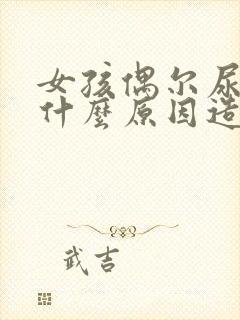 女孩偶尔尿
什麼原因造
武吉